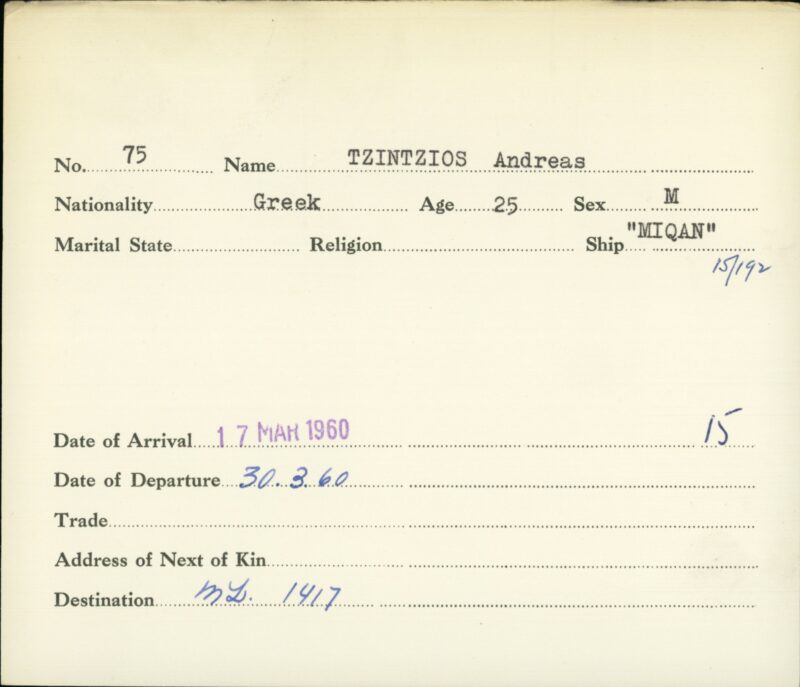 No. 75 Name TZINTZIOS Andreas
Nationality Greek Age 25 Sex M
Marital State Religion Ship "MIQAN"
15/192
Date of Arrival 17 MAR 1960 15
Date of Departure 30.3.60
Trade
Address of Next of Kin
Destination ML. 1417